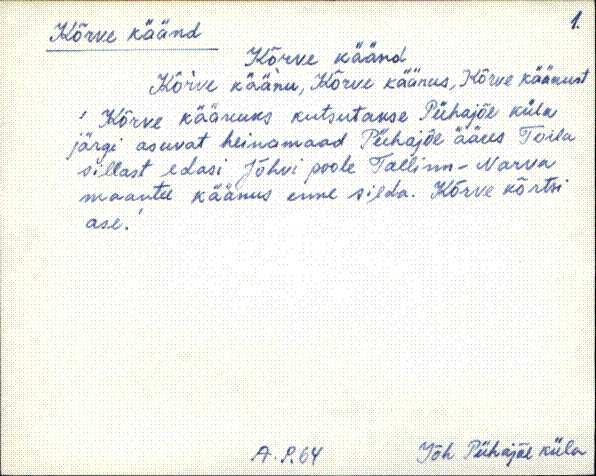 Kõrve käänd
1.
Kõrve käänd
Kõrve käänu, Kõrve käänus, Kõrve käänust
' Kõrve käänuks kutsutakse Pühajõe küla
järgi asuvat heinamaad Pühajõe ääres Toila
sillast edasi Jõhvi poole Tallinn-Narva
maantee käänus enne silda. Kõrve kõrtsi
ase.'
A. P. 64
Jõh Pühajõe küla